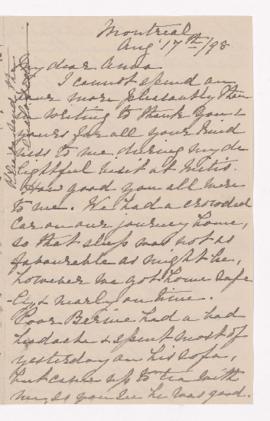 Montreal
Aug 17th/98
My dear Anna
I cannot spend an
hour more pleasantly than
in writing to thank you &
yours for all your kind
ness to me during my de
lightful visit at Metis.
How good you all were
to me. We had a crowded
car on our journey home,
so that sleep was not as
favourable as might be,
however we got home safe
-ly & nearly on time.
Poor Bernie had a bad
headache & spent most of
yesterday on his sofa,
but came up to tea with
me, so you see he was good.
Please send the